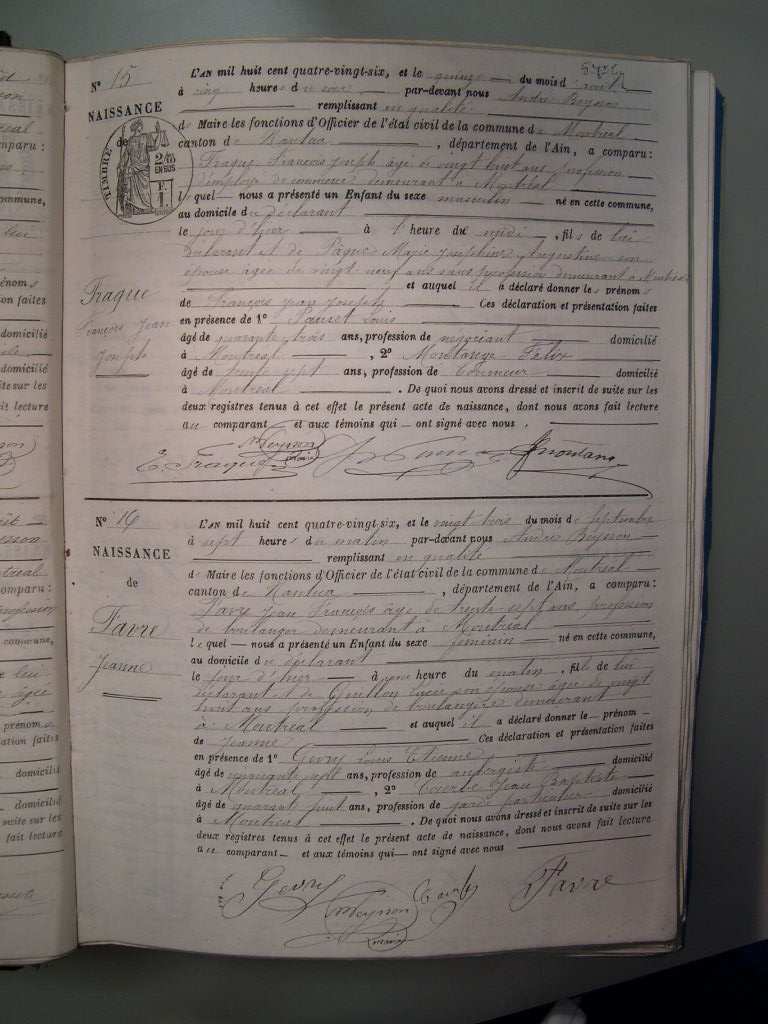 N° 15
NAISSANCE
de
TIMBRE
Fraque
François Jean
Joseph
L'AN mil huit cent quatre-vingt-six, et le quinze du mois d'août
à cinq heures du soir par-devant nous André Beynon
remplissant en qualité
de Maire les fonctions d'Officier de l'état civil de la commune de Montréal
canton de Nantua, département de l'Ain, a comparu:
Fraque François Joseph âgé de vingt huit ans profession
d'employé de commerce demeurant à Montréal
lequel nous a présenté un Enfant du sexe masculin né en cette commune,
au domicile du déclarant
le jour d'hier à heure du midi, fils de lui
déclarant et de Marie Joséphine Augustine son
épouse âgée de vingt neuf ans sans profession demeurant à Montréal
et auquel il a déclaré donner les prénoms
de François Jean Joseph Ces déclaration et présentation faites
en présence de 1° Louis
âgé de quarante trois ans, profession de négociant domicilié
à Montréal, 2° Moulange Félix
âgé de trente sept ans, profession de tourneur domicilié
à Montréal. De quoi nous avons dressé et inscrit de suite sur les
deux registres tenus à cet effet le présent acte de naissance, dont nous avons fait lecture
au comparant et aux témoins qui ont signé avec nous.
N° 16
NAISSANCE
de
Favre
Jeanne
L'AN mil huit cent quatre-vingt-six, et le vingt trois du mois de Septembre
à sept heures du matin par-devant nous André Beynon
remplissant en qualité
de Maire les fonctions d'Officier de l'état civil de la commune de Montréal
canton de Nantua, département de l'Ain, a comparu:
Favre Jean François âgé de trente sept ans, profession
de boulanger demeurant à Montréal
lequel nous a présenté un Enfant du sexe féminin né en cette commune,
au domicile du déclarant
le jour d'hier à heure du matin, fil de lui
déclarant et de son épouse âgée de vingt
huit ans profession de boulangère demeurant
à Montréal et auquel il a déclaré donner le prénom
de Jeanne Ces déclaration et présentation faites
en présence de 1° Gevry Louis Etienne
âgé de sept ans, profession de aubergiste domicilié
à Montréal, 2° Jean Baptiste
âgé de quarante huit ans, profession de garde particulier domicilié
à Montréal. De quoi nous avons dressé et inscrit de suite sur les
deux registres tenus à cet effet le présent acte de naissance, dont nous avons fait lecture
au comparant et aux témoins qui ont signé avec nous
Gevry
Beynon
maire
Favre